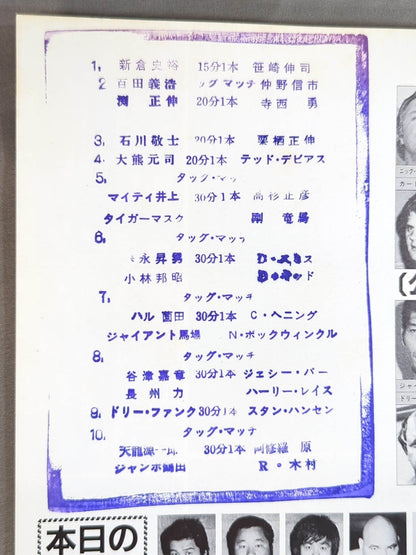 1. 新倉史裕 15分1本 笹崎伸司
2 百田義浩 ッグマッチ 仲野信市
渕正伸 20分1本 寺西勇
3. 石川敬士 20分1本 栗栖正伸
4. 大熊元司 20分1本 テッド・デビアス
5. タッグ・マッ
マイティ井上 30分1本 高杉正彦
タイガーマスク 剛竜馬
6. タッグ・マッチ
永昇男 30分1本 ス
小林邦昭 ッド
7. タッグ・マッチ
ハル薗田 30分1本 C・ヘニング
ジャイアント馬場 N・ボックウィンクル
8. タッグ・マッチ
谷津嘉章 30分1本 ジェシー・バー
長州力 ハーリー・レイス
9. ドリー・ファンク 30分1本 スタン・ハンセン
10. タッグ・マッチ
天龍源一郎 30分1本 阿修羅原
ジャンボ鶴田 R・木村
本日の